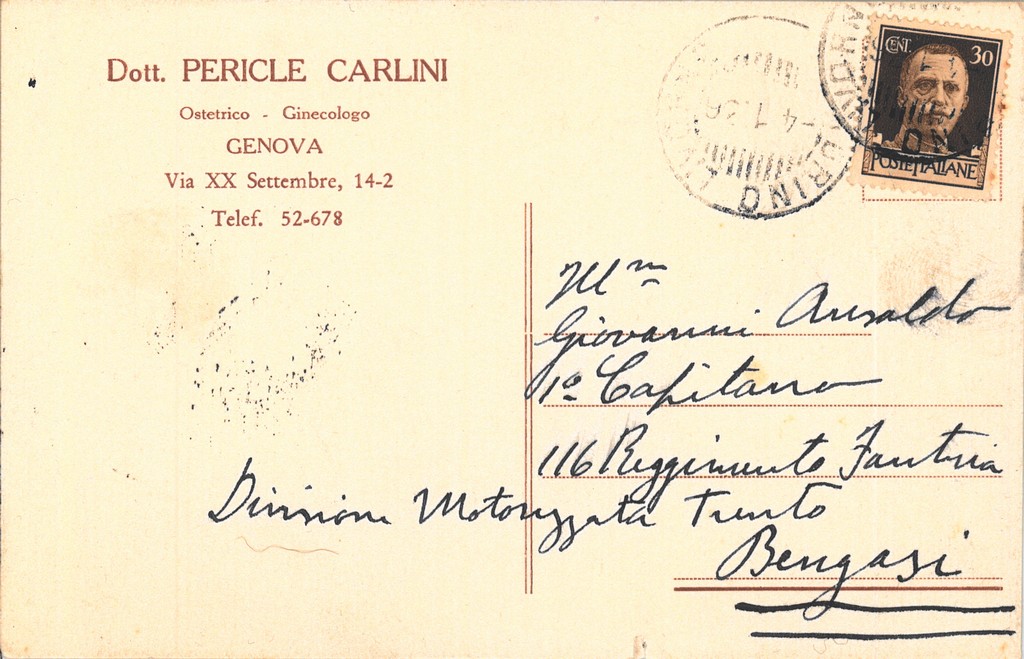 Dott. PERICLE CARLINI
Ostetrico - Ginecologo
GENOVA
Via XX Settembre, 14-2
Telef. 52-678
-4.1.36
CENT. 30
POSTE ITALIANE
Giovanni Ansaldo
1º Capitano
116 Reggimento Fantria
Divisione Motorizzata Trento
Bengasi